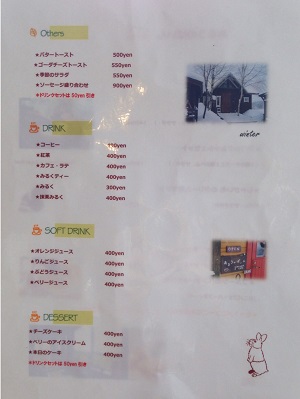 Others
★バタートースト 500yen
★ゴーダチーズトースト 550yen
★季節のサラダ 550yen
★ソーセージ盛り合わせ 900yen
★ドリンクセットは50yen引き
winter
DRINK
★コーヒー
★紅茶 400yen
★カフェ・ラテ 400yen
★みるくティー 400yen
★みるく 300yen
★抹茶みるく 400yen
SOFT DRINK
★オレンジジュース 400yen
★りんごジュース 400yen
★ぶどうジュース 400yen
★ベリージュース 400yen
DESSERT
★チーズケーキ 400yen
★ベリーのアイスクリーム 400yen
★本日のケーキ 400yen
★ドリンクセットは50yen引き